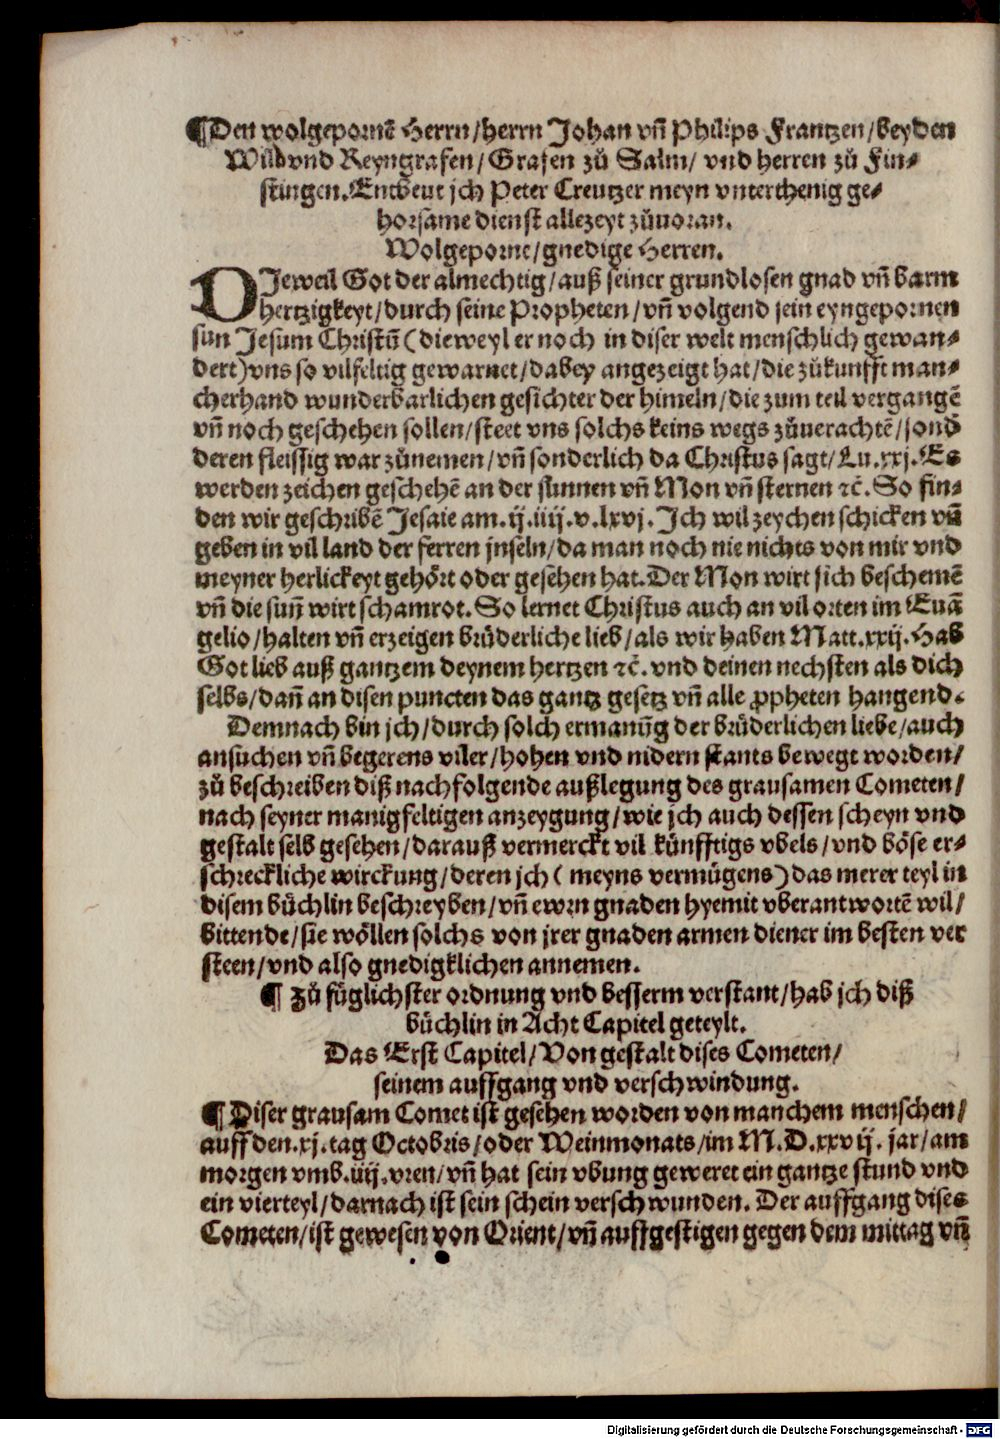 ¶Den wolgepornẽ Herrn/herrn Johan vñ Philips Frantzen/beyden
Wild vnd Reyngrafen/Grafen zů Salm/ vnd herren zů Fin⸗
stingen. Entbeut jch Peter Creutzer meyn vnterthenig ge⸗
horsame dienst allezeyt zůuoran.
Wolgeporne/gnedige Herren.
DJeweil Got der almechtig/auß seiner grundlosen gnad vñ barm
hertzigkeyt/durch seine Propheten/vñ volgend sein eyngepornen
sun Jesum Christũ (dieweyl er noch in diser welt menschlich gewan⸗
dert) vns so vilfeltig gewarnet/dabey angezeigt hat/die zůkunfft man⸗
cherhand wunderbarlichen gesichter der himeln/die zum teil vergangẽ
vñ noch geschehen sollen/steet vns solchs keins wegs zůuerachtẽ/sond
deren fleissig war zůnemen/vñ sonderlich da Christus sagt/Lu.xxj. Es
werden zeichen geschehẽ an der sunnen vñ Mon vñ sternen ꝛc̃. So fin⸗
den wir geschribẽ Jesaie am.ij.iiij.v.lxvj. Jch wil zeychen schicken vñ
geben in vil land der ferren jnseln/da man noch nie nichts von mir vnd
meyner herlickeyt gehört oder gesehen hat. Der Mon wirt sich beschemẽ
vñ die suñ wirt schamrot. So lernet Christus auch an vil orten im Euã
gelio/halten vñ erzeigen brüderliche lieb/als wir haben Matt.xxij. Hab
Got lieb auß gantzem deynem hertzen ꝛc̃. vnd deinen nechsten als dich
selbs/dañ an disen puncten das gantz gesetz vñ alle ꝓpheten hangend.
Demnach bin jch/durch solch ermanũg der brüderlichen liebe/auch
ansuchen vñ begerens viler/hohen vnd nidern stants bewegt worden/
zů beschreiben diß nachfolgende außlegung des grausamen Cometen/
nach seyner manigfeltigen anzeygung/wie jch auch dessen scheyn vnd
gestalt selb gesehen/darauß vermerckt vil künfftigs vbels/vnd böse er⸗
schreckliche wirckung/deren jch ( meyns vermügens) das merer teyl in
disem büchlin beschreyben/vñ ewrn gnaden hyemit vberantwortẽ wil/
bittende/sie wöllen solchs von jrer gnaden armen diener im besten ver
steen/vnd also gnedigklichen annemen.
¶ Zů füglichster ordnung vnd besserm verstant/hab jch diß
büchlin in Acht Capitel geteylt.
Das Erst Capitel/Von gestalt dises Cometen/
seinem auffgang vnd verschwindung.
¶ Diser grausam Comet ist gesehen worden von manchem menschen/
auff den.xj.tag Octobris/oder Weinmonats/im M.D.xxvij. jar/am
morgen vmb.iiij.vren/vñ hat sein vbung geweret ein gantze stund vnd
ein vierteyl/darnach ist sein schein verschwunden. Der auffgang dises
Cometen/ist gewesen von Orient/vñ auffgestigen gegen dem mittag vñ
Digitalisierung gefördert durch die Deutsche Forschungsgemeinschaft - DFG